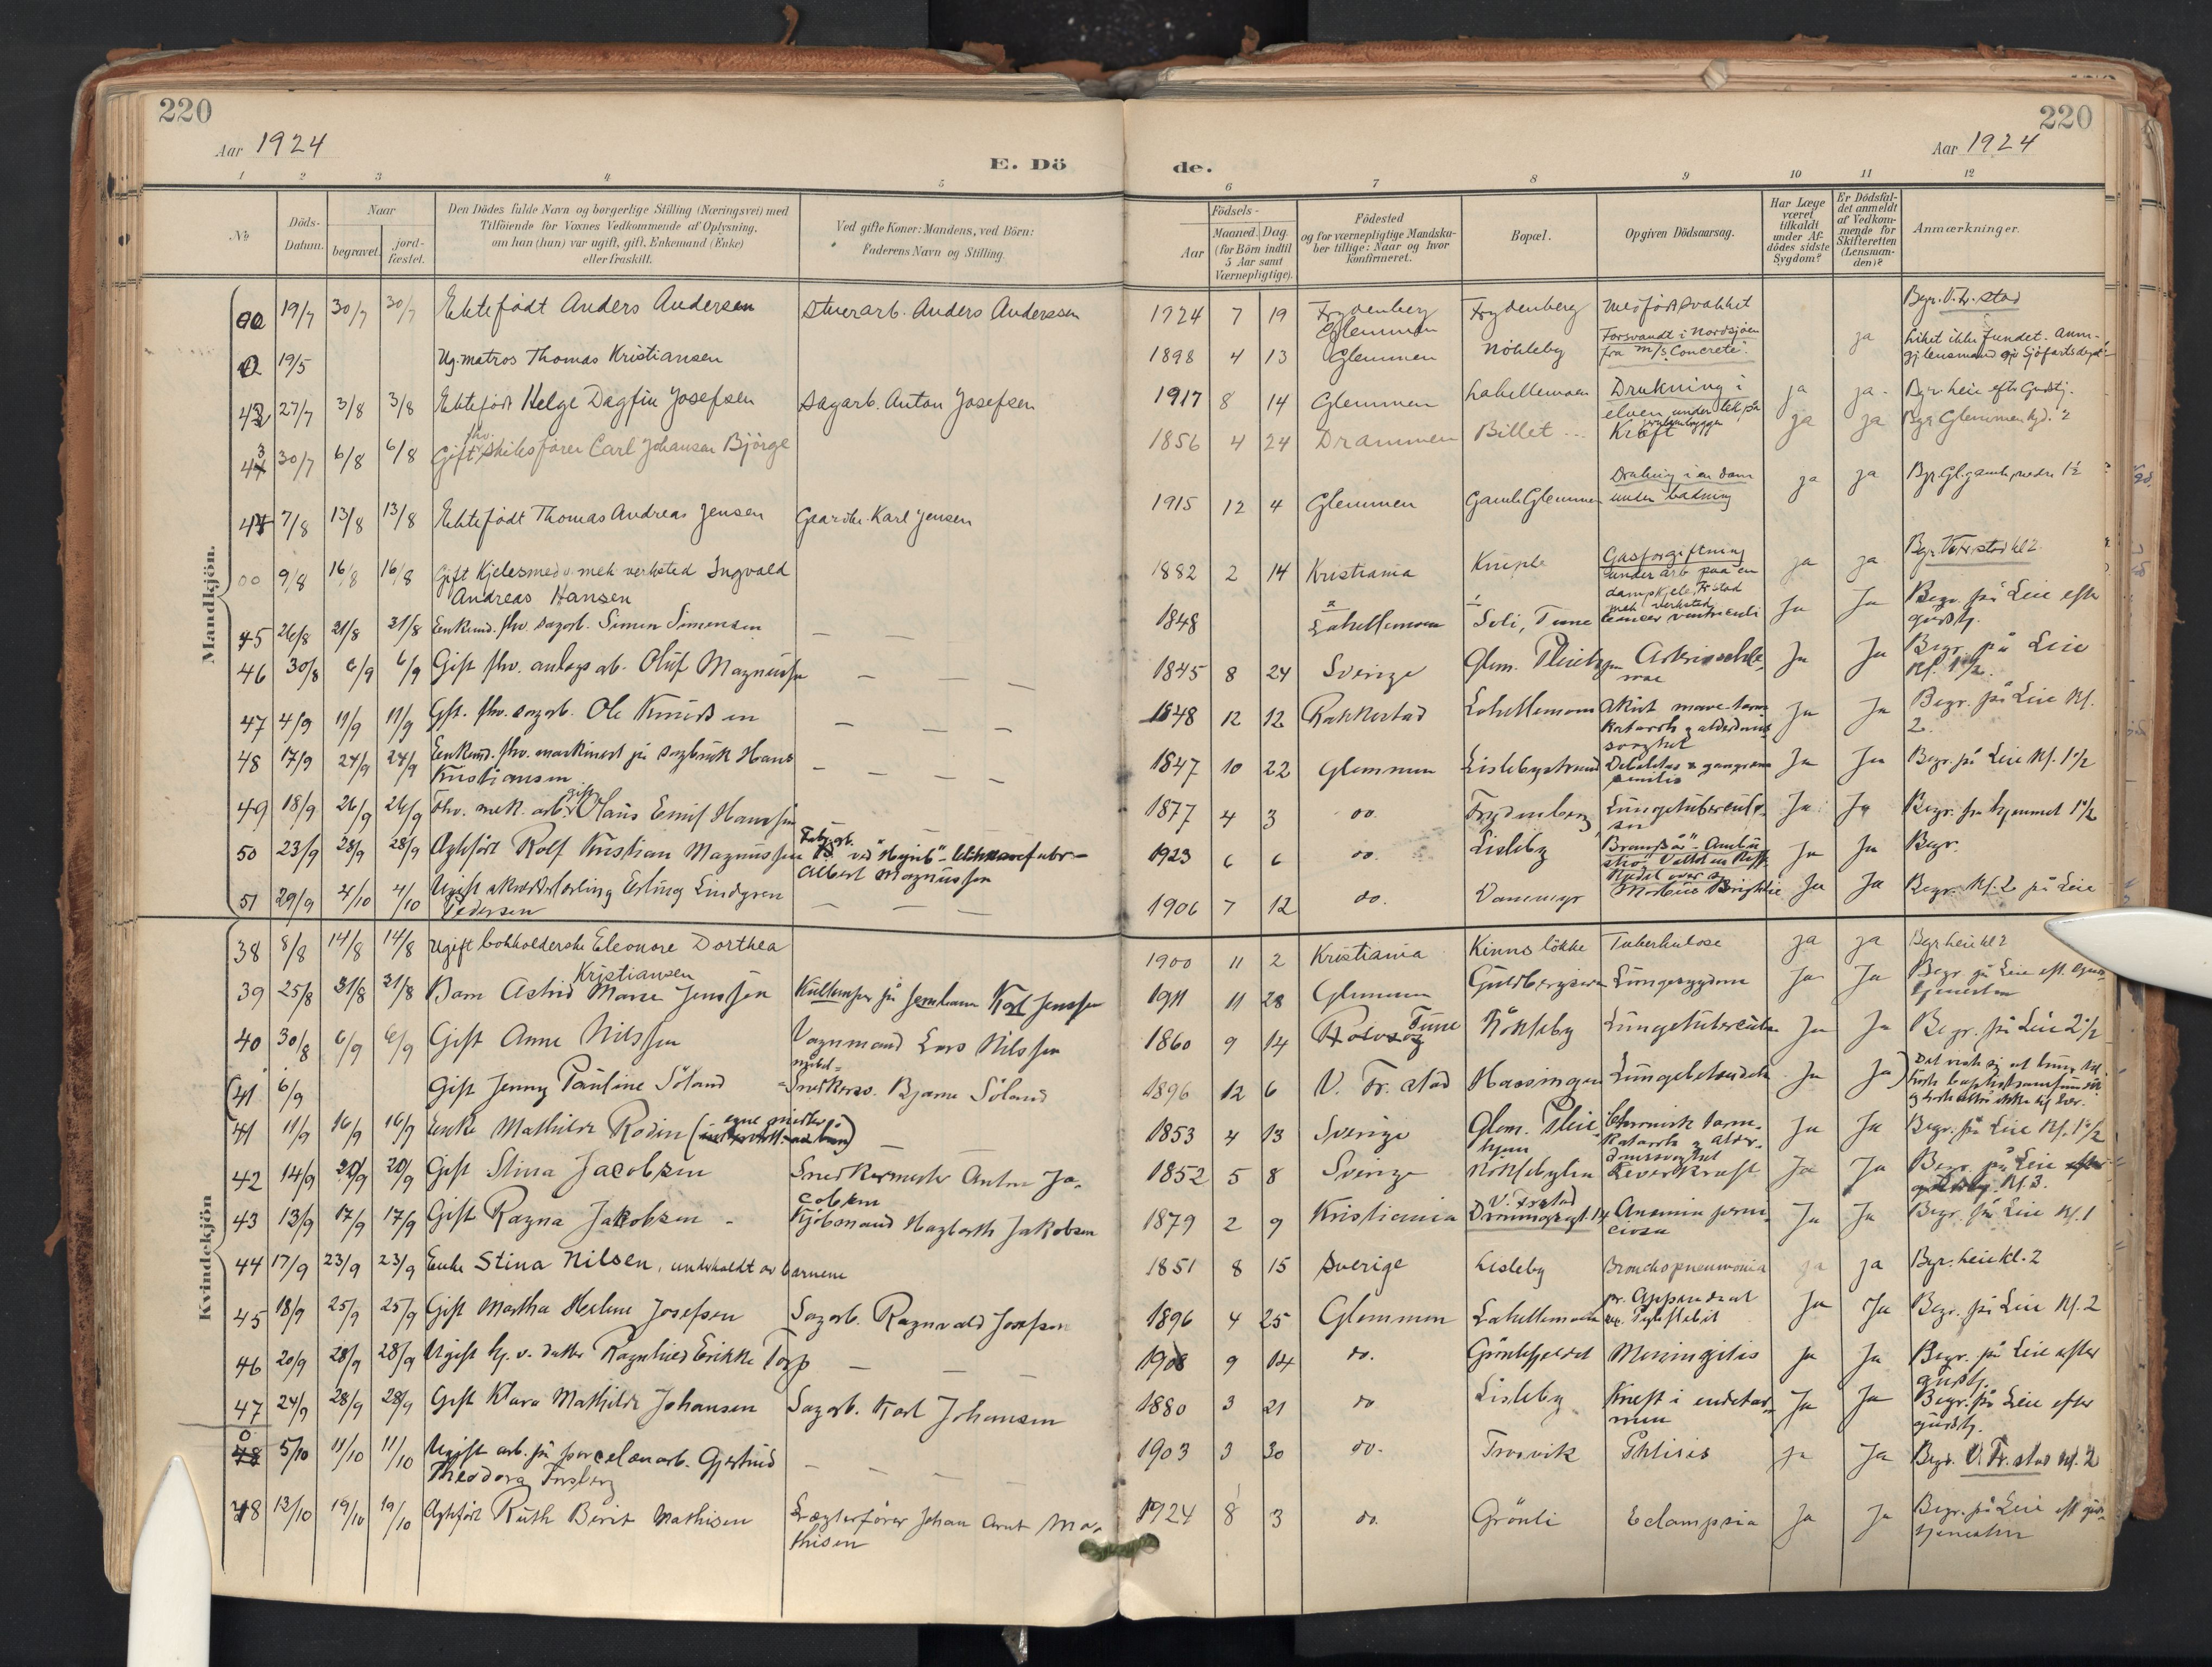 220
220
Aar 1924
E. Dö
de.
Aar 1924
1 2 3 4 5 6 7 8 9 10 11 12
No
Döds-
Datum.
Naar
begravet.
jord-
fæstet.
Den Dödes fulde Navn og borgerlige Stilling (Næringsvei) med
Tilföiende for Voxnes Vedkommende af Oplysning,
om han (hun) var ugift, gift, Enkemand (Enke)
eller fraskilt.
Ved gifte Koner: Mandens, ved Börn:
Faderens Navn og Stilling.
Födsels-
Aar
Maaned. Dag.
(for Börn indtil
5 Aar samt
Værnepligtige).
Födested
og for værnepligtige Mandska-
ber tillige: Naar og hvor
konfirmeret.
Bopæl.
Opgiven Dödsaarsag.
Har Læge
været
tilkaldt
under Af-
dödes sidste
Sygdom?
Er Dödsfal-
det anmeldt
af Vedkom-
mende for
Skifteretten
(Lensman-
den)?
Anmærkninger.
Mandkjön.
19/7 30/7 30/7 Ektefödt Anders Andersen Stuerarb. Anders Anderssen 1924 7 19 Frydenberg Glemmen Frydenberg Medfödt svakhet Bgr. V. Fr. stad
0 19/5 Ug. matros Thomas Kristiansen 1898 4 13 Glemmen Nökleby Forsvandt i Nordsjöen fra m/s "Concrete". ja Liket ikke fundet. Anm.
42 27/7 3/8 3/8 Ektefödt Helge Dagfin Josefsen Sagarb. Anton Josefsen 1917 8 14 Glemmen Lahellemoen Drukning i elven under lek ja ja. Bgr. Leie eft. Gudstj.
43 30/7 6/8 6/8 Gift fhv. skibsförer Carl Johansen Björge 1856 4 24 Drammen Billet Kræft ja ja Bgr. Glemmen
44 7/8 13/8 13/8 Ektefödt Thomas Andreas Jensen Gaardbr. Karl Jensen 1915 12 4 Glemmen Gamle Glemmen Drukning i en dam under badning ja ja Bgr. Gl. gamle 1½
00 9/8 16/8 16/8 Gift Kjelesmed v. mek verksted Ingvald
Andreas Hansen 1882 2 14 Kristiania Kniple Gasforgiftning under arb paa en dampkjele Fr.stad mek verksted ja ja Bgr. V. Fr. stad kl 2.
45 26/8 31/8 31/8 Enkemd. fhv. sagarb. Simen Simensen 1848 Lahellemoen Soli, Tune Cancer ventriculi Ja Ja Begr. på Leie efter gudstj.
46 30/8 6/9 6/9 Gift fhv. anlegsarb. Oluf Magnussen 1845 8 24 Sverige Glem. Pleiehjem Ja Ja Begr. på Leie Kl. 1½.
47 4/9 11/9 11/9 Gft. fhv. sagarb. Ole Knudsen 1848 12 12 Rakkestad Lahellemoen Akut mave-tarm katarrh & alderdomssvaghet Ja Ja Begr. på Leie Kl. 2.
48 17/9 24/9 24/9 Enkemd. fhv. maskinist på sagbruk Hans
Kristiansen 1847 10 22 Glemmen Lislebystrand Debilitas & gangræna senilis Ja Ja Begr. på Leie Kl. 1½
49 18/9 26/9 26/9 Fhv. mek. arb. gift Olaus Emil Hanssen 1877 4 3 do. Frydenberg Lungetuberculose Ja Ja Begr. fra hjemmet 1½
50 23/9 28/9 28/9 Ægtefödt Rolf Kristian Magnussen Albert Magnussen 1923 6 6 do. Lisleby Ja Ja Begr.
51 29/9 4/10 4/10 Ugift skrædderlærling Erling Lindgren
Pedersen 1906 7 12 do. Vammyr Morbus Brightii Ja Ja Begr. Kl. 2 på Leie
Kvindekjön
38 8/8 14/8 14/8 Ugift bokholderske Eleonore Dorthea
Kristiansen 1900 11 2 Kristiania Kinnslökke Tuberkulose ja ja Bgr. Leie kl 2
39 25/8 31/8 31/8 Barn Astrid Marie Jenssen Karl Jenssen 1911 11 28 Glemmen Lungesygdom Ja Ja Begr. på Leie eft. gudstjenesten
40 30/8 6/9 6/9 Gift Anne Nilssen Vognmand Lars Nilssen 1860 9 14 Tune Nökleby Lungetuberculose Ja Ja Begr. på Leie 2½
(41 6/9 Gift Jenny Pauline Söland Snedkersv. Bjarne Söland 1896 12 6 V. Fr. stad Hassingen Lungebetændelse Ja Ja)
41 11/9 16/9 16/9 Enke Mathilde Rodin (egne midler) 1853 4 13 Sverige Glem. Pleiehjem Chronisk tarmkatarrh & alderdomssvaghet Ja Ja Begr. på Leie Kl. 1½
42 14/9 20/9 20/9 Gift Stina Jacobsen Snedkermester Anton Jacobsen 1852 5 8 Sverige Nöklebylia Leverkræft Ja Ja Begr. på Leie Kl. 3.
43 13/9 17/9 17/9 Gift Ragna Jakobsen Kjöbmand Hagbarth Jakobsen 1879 2 9 Kristiania V. Fr.stad Dronningsgt. 14 Anæmia perniciosa Ja Ja Begr. på Leie Kl. 1
44 17/9 23/9 23/9 Enke Stina Nilsen, underholdt av barnene 1851 8 15 Sverige Lisleby Bronchopneumonia ja ja Bgr. Leie kl. 2
45 18/9 25/9 25/9 Gift Martha Helene Josefsen Sagarb. Ragnvald Josefsen 1896 4 25 Glemmen Lahellemoen Ja Ja Begr. på Leie Kl. 2
46 20/9 28/9 28/9 Ugift hj. v. datter Ragnhild Erikke Torp 1908 9 14 do. Gröntefjeldet Meningitis Ja Ja Begr. på Leie efter gudstj.
47 24/9 28/9 28/9 Gift Klara Mathilde Johansen Sagarb. Karl Johansen 1880 3 21 do Lisleby Kræft i endetarmen Ja Ja Begr. på Leie efter gudstj.
0 48 5/10 11/10 11/10 Ugift arb. på porcelænarb. Gjertrud
Theodora Forsberg 1903 3 30 do. Trosvik Phtisis Ja Ja Begr. V. Fr. stad Kl. 2
48 13/10 19/10 19/10 Ægtefödt Ruth Berit Mathisen Lægterförer Johan Arnt Mathisen 1924 8 3 do. Grönli Eclampsia Ja Ja Begr. på Leie eft gudstjenesten